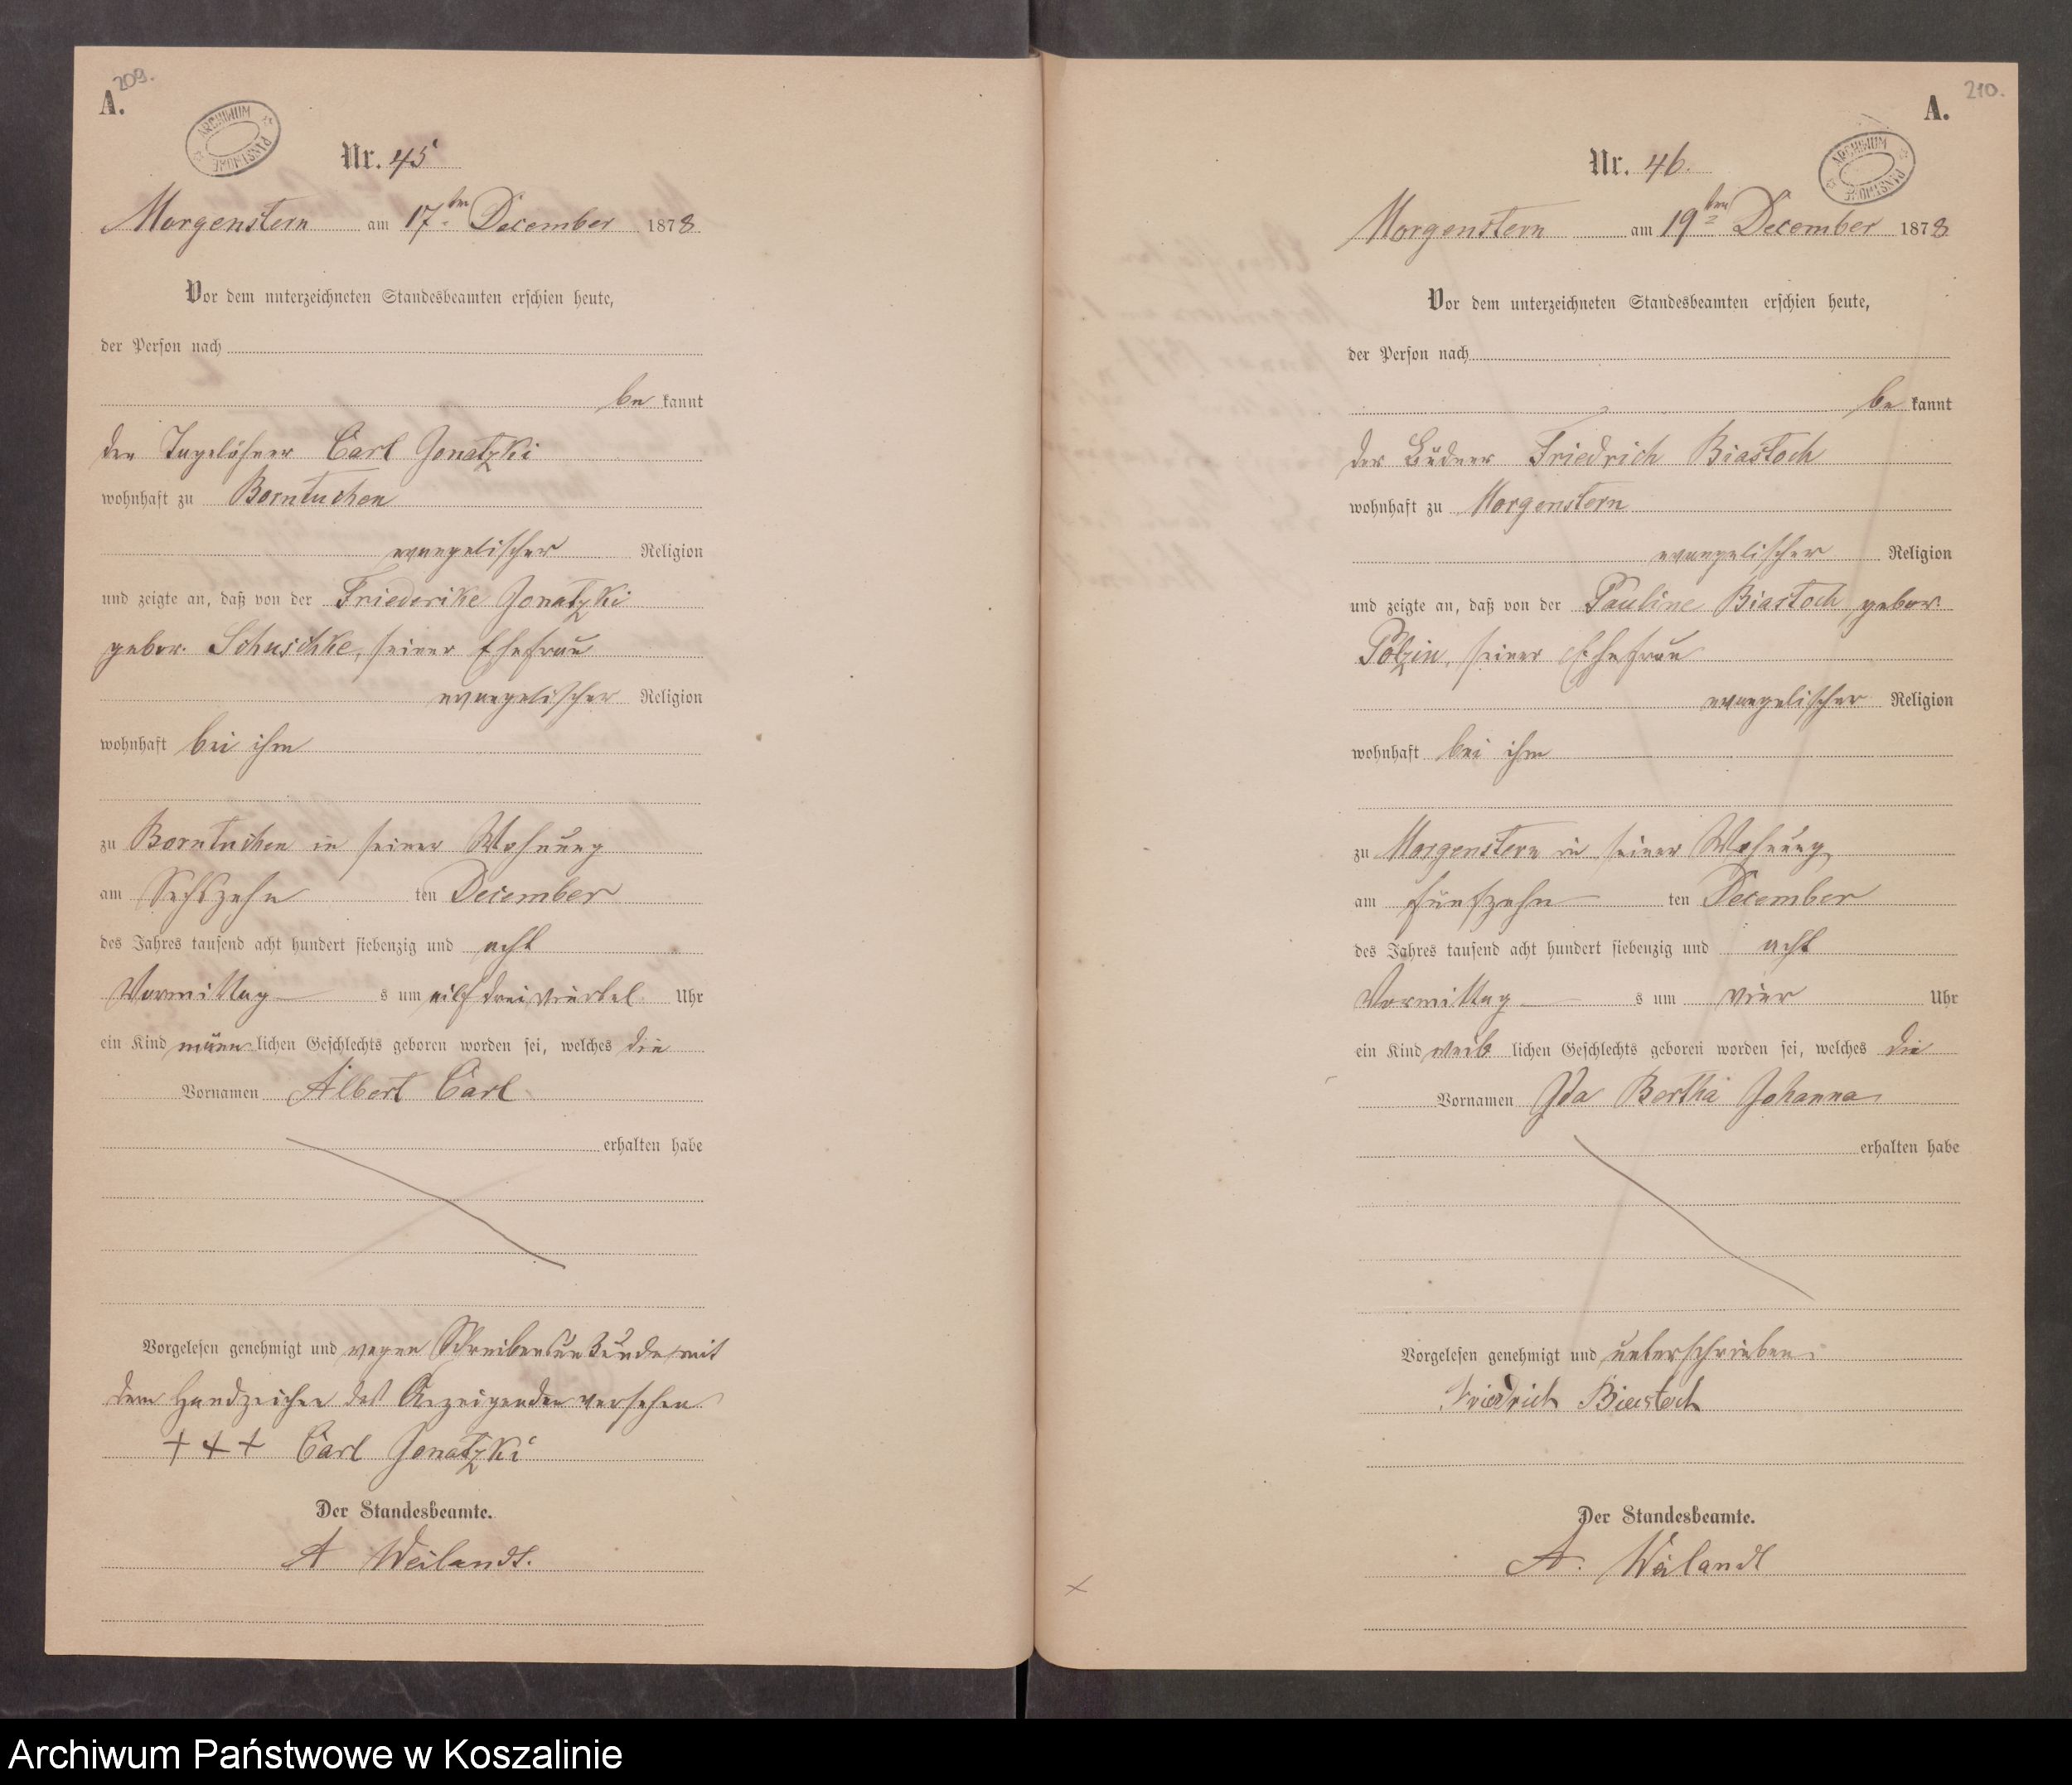 209.
A.
ARCHIWUM PAŃSTWOWE
Nr. 45
Morgenstern am 17ten December 1878
Vor dem unterzeichneten Standesbeamten erschien heute,
der Person nach
be kannt
der Tagelöhner Carl Jonatzki
wohnhaft zu Borntuchen
evangelischer Religion
und zeigte an, daß von der Friederike Jonatzki
gebor. Schuschke, seiner Ehefrau
evangelischer Religion
wohnhaft bei ihm
zu Borntuchen in seiner Wohnung
am Sechszehn ten December
des Jahres tausend acht hundert siebenzig und acht
Vormittag s um eilf dreiviertel Uhr
ein Kind männ lichen Geschlechts geboren worden sei, welches die
Vornamen Albert Carl
erhalten habe
Vorgelesen genehmigt und wegen Schreibensunkunde mit
dem Handzeichen des Anzeigenden versehen
+++ Carl Jonatzki
Der Standesbeamte.
A Weilandt.
210.
A.
ARCHIWUM PAŃSTWOWE
Nr. 46.
Morgenstern am 19ten December 1878
Vor dem unterzeichneten Standesbeamten erschien heute,
der Person nach
be kannt
der Büdner Friedrich Biastoch
wohnhaft zu Morgenstern
evangelischer Religion
und zeigte an, daß von der Pauline Biastoch gebor.
Polzin, seiner Ehefrau
evangelischer Religion
wohnhaft bei ihm
zu Morgenstern in seiner Wohnung
am fünfzehn ten December
des Jahres tausend acht hundert siebenzig und acht
Vormittag s um vier Uhr
ein Kind weib lichen Geschlechts geboren worden sei, welches die
Vornamen Ida Bertha Johanna
erhalten habe
Vorgelesen genehmigt und unterschrieben.
Friedrich Biastoch
Der Standesbeamte.
A. Weilandt
Archiwum Państwowe w Koszalinie